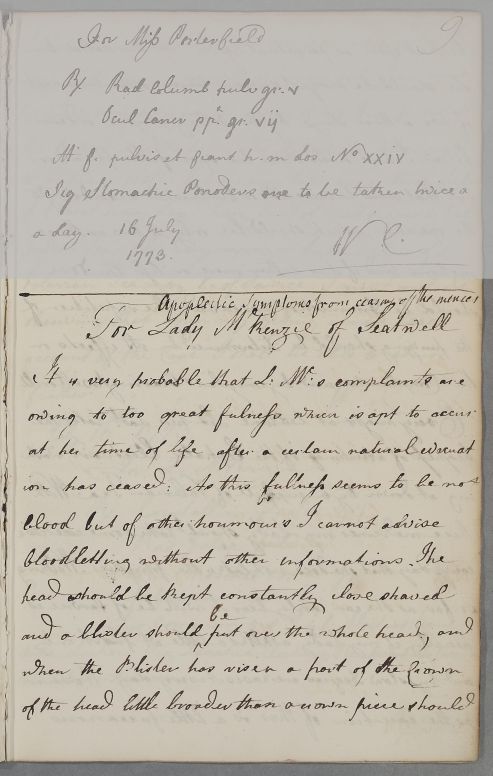 9
For Miss Porterfield
Rx Rad Columb pulv gr. v
Ocul Cancr ppt gr. vij
M f. pulvis et fiant h. m dos No XXIV
Sig Stomachic Powders one to be taken twice a
a day. 16 July
1773.
W C.
Apoplectic Symptoms from ceasing of the menses
For Lady McKenzie of Seatwell
It is very probable that L: Mc:s complaints are
owing to too great fulness which is apt to occur
at her time of life after a certain natural evacuat
ion has ceased: As this fulness seems to be not
blood but of other houmours I cannot advise
bloodletting without other informations. The
head should be kept constantly close shaved
and a blister should be put over the whole head, and
when the Blister has risen a part of the Crown
of the head little broader than a crown piece should